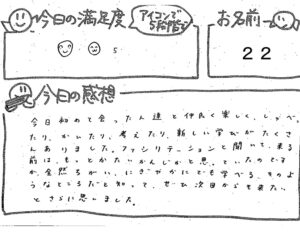 今日の満足度
アイコンで
5段階で
お名前
22
5
今日の感想
今日初めて会った人達と仲良く楽しく、しゃべっ
たり、かいたり、考えたり、新しい学びがたくさ
んありました。ファシリテーションと聞いて、来る
前は、もっとかたいかんじかと思っていたのです
が、全然ちがい、にぎやかにでも学べる、そのよ
うなところだと知って、ぜひ次回からも来たい
とさらに思いました。